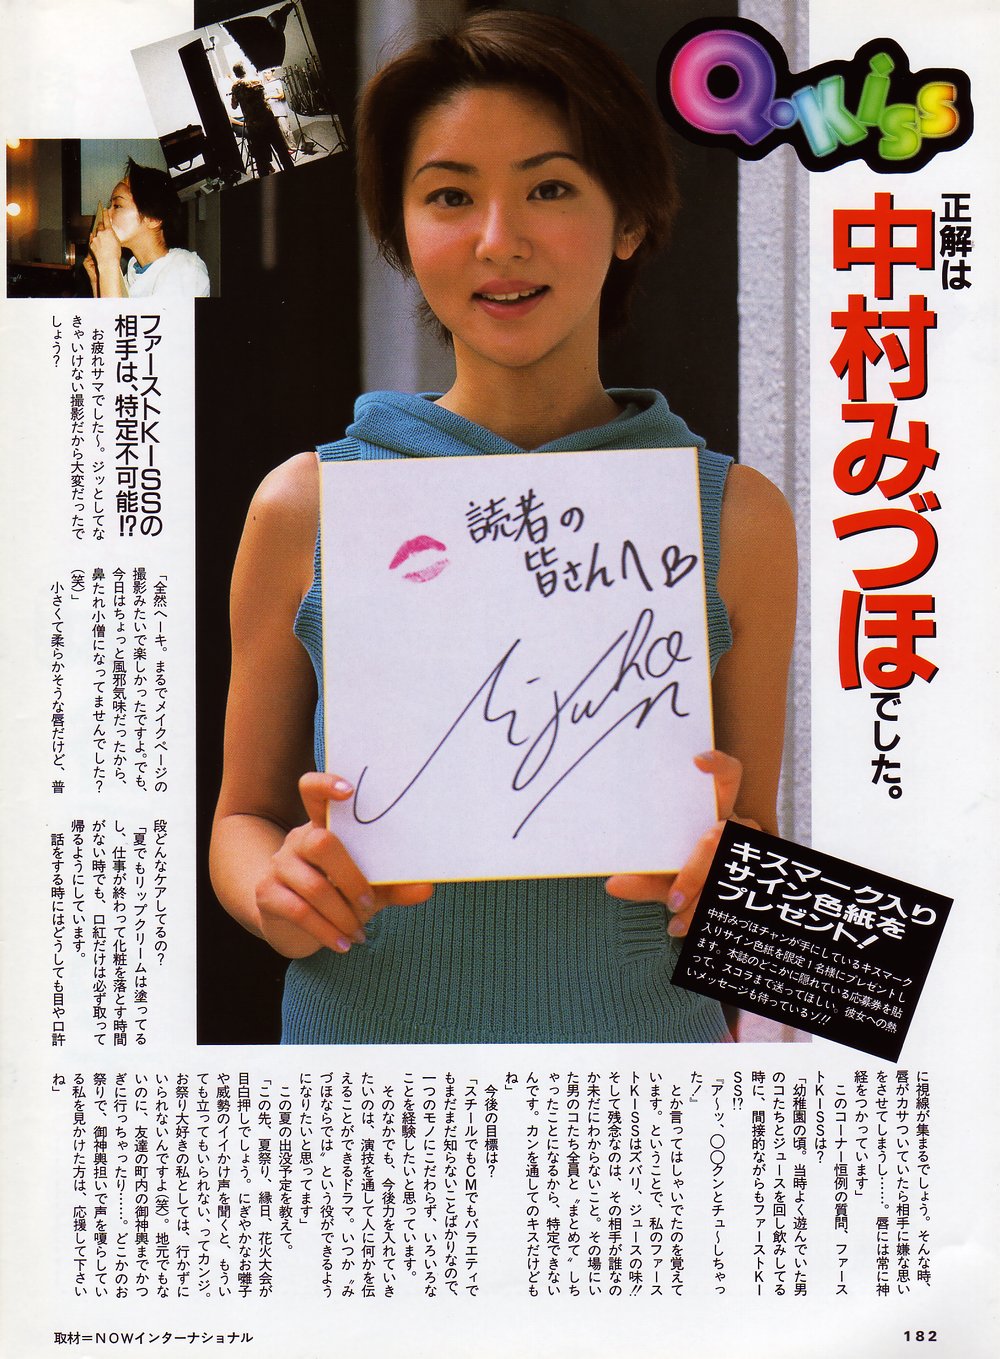 Q・Kiss
正解は
中村みづほ
でした。
読者の
皆さんへ
Mizuho
キスマーク入り
サイン色紙を
プレゼント！
中村みづほチャンが手にしているキスマーク
入りサイン色紙を限定１名様にプレゼントし
ます。本誌のどこかに隠れている応募券を貼
って、スコラまで送ってほしい。彼女への熱
いメッセージも待っているゾ!!
ファーストKISSの
相手は、特定不可能!?
お疲れサマでした〜。ジッとしてな
きゃいけない撮影だから大変だったで
しょう？
「全然ヘーキ。まるでメイクページの
撮影みたいで楽しかったですよ。でも、
今日はちょっと風邪気味だったから、
鼻たれ小僧になってませんでした？
（笑）」
小さくて柔らかそうな唇だけど、普
段どんなケアしてるの？
「夏でもリップクリームは塗ってる
し、仕事が終わって化粧を落とす時間
がない時でも、口紅だけは必ず取って
帰るようにしています。
話をする時にはどうしても目や口許
に視線が集まるでしょう。そんな時、
唇がカサついていたら相手に嫌な思い
をさせてしまうし……。唇には常に神
経をつかっています」
このコーナー恒例の質問、ファース
トKISSは？
「幼稚園の頃。当時よく遊んでいた男
のコたちとジュースを回し飲みしてる
時に、間接的ながらもファーストKI
SS!?
『ア〜ッ、○○クンとチュ〜しちゃっ
た！』
とか言ってはしゃいでたのを覚えて
います。ということで、私のファース
トKISSはズバリ、ジュースの味!!
そして残念なのは、その相手が誰なの
か未だにわからないこと。その場にい
た男のコたち全員と〝まとめて〟しち
ゃったことになるから、特定できない
んです。カンを通してのキスだけども
ね」
今後の目標は？
「スチールでもCMでもバラエティで
もまだまだ知らないことばかりなので、
一つのモノにこだわらず、いろいろな
ことを経験したいと思っています。
そのなかでも、今後力を入れていき
たいのは、演技を通して人に何かを伝
えることができるドラマ。いつか〝み
づほならでは〟という役ができるよう
になりたいと思ってます」
この夏の出没予定を教えて。
「この先、夏祭り、縁日、花火大会が
目白押しでしょう。にぎやかなお囃子
や威勢のイイかけ声を聞くと、もうい
ても立ってもいられない、ってカンジ。
お祭り大好きの私としては、行かずに
いられないんですよ（笑）。地元でもな
いのに、友達の町内の御神輿までかつ
ぎに行っちゃったり……。どこかのお
祭りで、御神輿担いで声を嗄らしてい
る私を見かけた方は、応援して下さい
ね」
取材＝NOWインターナショナル
182